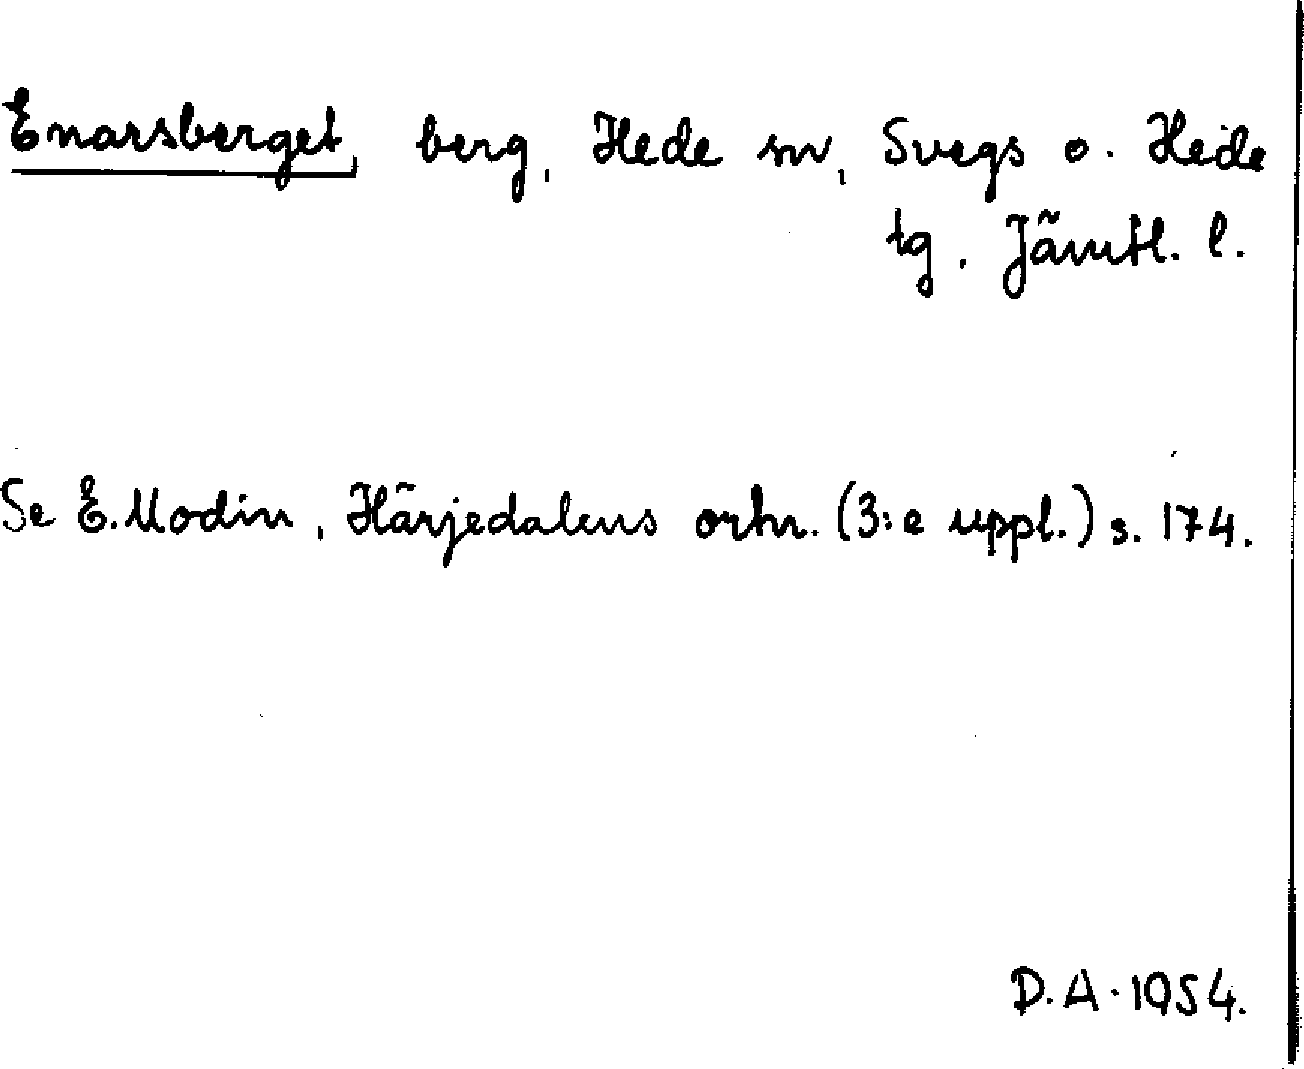 Enarsberget, berg, Hede sn, Svegs o. Hede
tg, Jämtl. l.
Se E. Modin, Härjedalens ortn. (3:e uppl.) s. 174.
D.A. 1954.